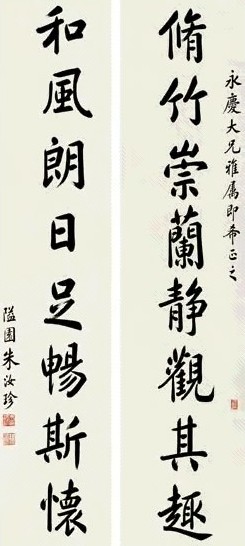 永慶大兄雅属即希正之
脩竹崇蘭靜觀其趣
和風朗日足暢斯懷
隘園朱汝珍